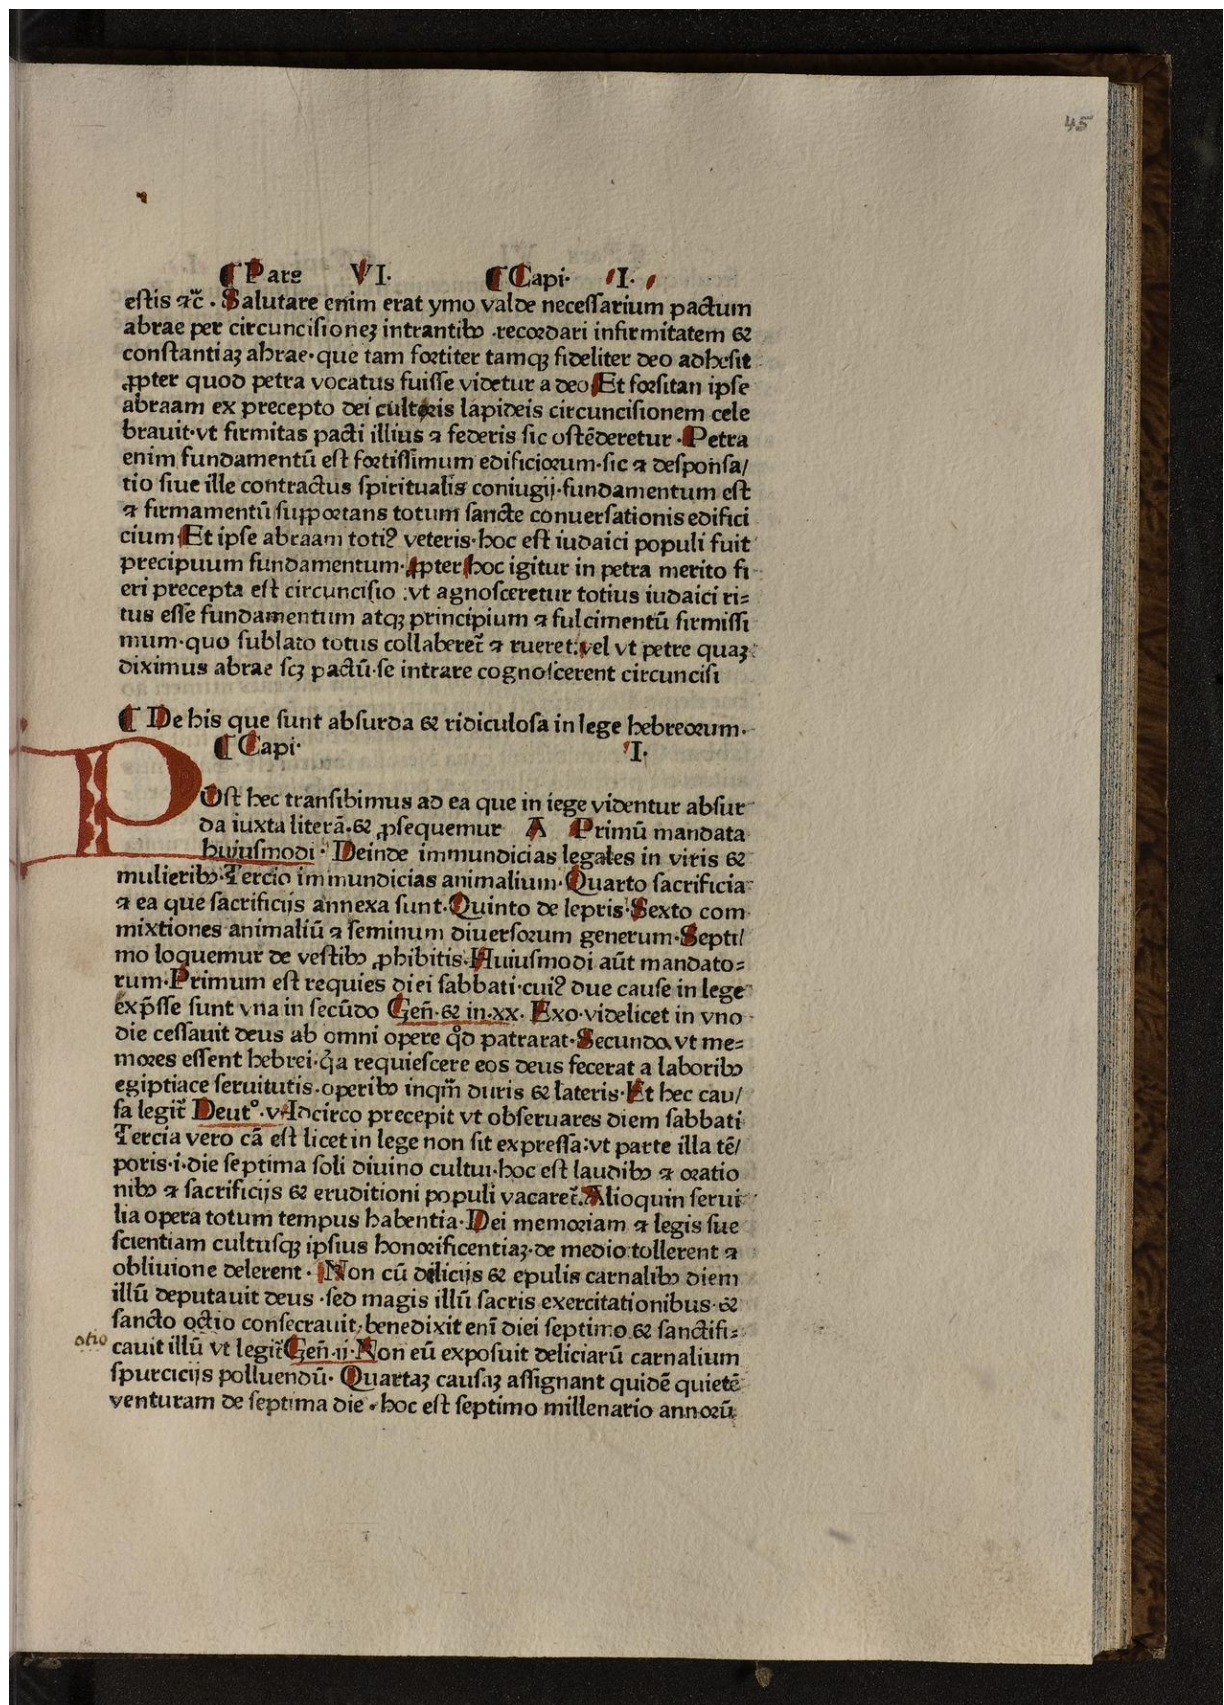 45
¶ Pars VI. ¶ Capi· I.
estis ⁊c̃ . Salutare enim erat ymo valde necessarium pactum
abrae per circuncisioneʒ intrantibꝰ .recordari infirmitatem &
constantiaʒ abrae·que tam fortiter tamqʒ fideliter deo adhesit
ꝓpter quod petra vocatus fuisse videtur a deo Et forsitan ipse
abraam ex precepto dei cultoris lapideis circuncisionem cele
brauit·vt firmitas pacti illius ⁊ federis sic ostēderetur ·Petra
enim fundamentū est fortissimum edificiorum·sic ⁊ desponsa/
tio siue ille contractus spiritualis coniugij·fundamentum est
⁊ firmamentū supportans totum sancte conuersationis edifici
cium Et ipse abraam totiꝰ veteris·hoc est iudaici populi fuit
precipuum fundamentum·ꝓpter hoc igitur in petra merito fi
eri precepta est circuncisio :vt agnosceretur totius iudaici ri=
tus esse fundamentum atqʒ principium ⁊ fulcimentū firmissi
mum·quo sublato totus collaberet̃ ⁊ rueret:vel vt petre quaʒ
diximus abrae scʒ pactū·se intrare cognoscerent circuncisi
¶ De his que sunt absurda & ridiculosa in lege hebreorum.
¶ Capi· I.
POst hec transibimus ad ea que in lege videntur absur
da iuxta literā.& ꝓsequemur A Primū mandata
huiusmodi· Deinde immundicias legales in viris &
mulieribꝰ·Tercio immundicias animalium·Quarto sacrificia
⁊ ea que sacrificijs annexa sunt·Quinto de lepris·Sexto com
mixtiones animaliū ⁊ seminum diuersorum generum·Septi/
mo loquemur de vestibꝰ ꝓhibitis·Huiusmodi aūt mandato=
rum·Primum est requies diei sabbati·cuiꝰ due cause in lege
exp̄sse sunt vna in secūdo Geñ·& in·xx· Exo·videlicet in vno
die cessauit deus ab omni opere qd̊ patrarat·Secunda vt me=
mores essent hebrei·q̇a requiescere eos deus fecerat a laboribꝰ
egiptiace seruitutis.operibꝰ inqm̃ duris & lateris·Et hec cau/
sa legit̃ Deut°·v·Idcirco precepit vt obseruares diem sabbati
Tercia vero cā est licet in lege non sit expressa:vt parte illa tē/
poris·i·die septima soli diuino cultui·hoc est laudibꝰ ⁊ oratio
nibꝰ ⁊ sacrificijs & eruditioni populi vacaret̃·Alioquin serui
lia opera totum tempus habentia·Dei memoriam ⁊ legis sue
scientiam cultusqʒ ipsius honorificentiaʒ·de medio tollerent ⁊
obliuione delerent · Non cū delicijs & epulis carnalibꝰ diem
illū deputauit deus ·sed magis illū sacris exercitationibus·&
sancto octio consecrauit·benedixit enī diei septimo & sanctifi=
otio
cauit illū vt legit̃ Geñ·ij·Non eū exposuit deliciarū carnalium
spurcicijs polluendū· Quartaʒ causaʒ assignant quidē quietē
venturam de septima die·hoc est septimo millenario annorū